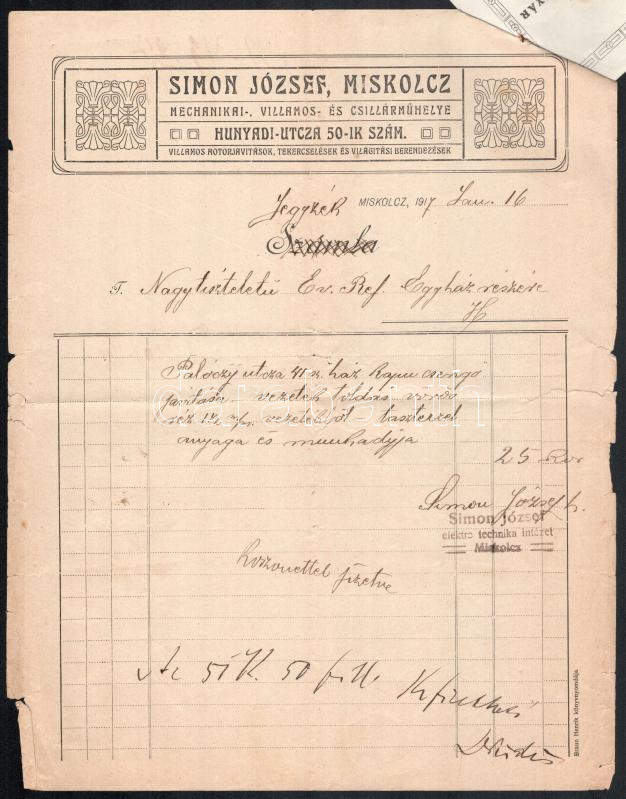 YÁR
SIMON JÓZSEF, MISKOLCZ
MECHANIKAI-, VILLAMOS- ÉS CSILLÁRMŰHELYE
HUNYADI-UTCZA 50-IK SZÁM.
VILLAMOS MOTORJAVITÁSOK, TEKERCSELÉSEK ÉS VILÁGITÁSI BERENDEZÉSEK
Jegyzék MISKOLCZ, 1917 Jan. 16
Számla
T. Nagytiszteletü Ev. Ref. Egyház részére
H
Palóczy utcza 41 sz. ház kapu csengő
javitása vezeték toldás
vezetékből taszterrel
anyaga és munkadijja
25 Kor
Simon József
Simon József
elektro technika intézet
Miskolcz
köszönettel fizetve
Az 51 K. 50 fill.
Braun Henrik könyvnyomdája